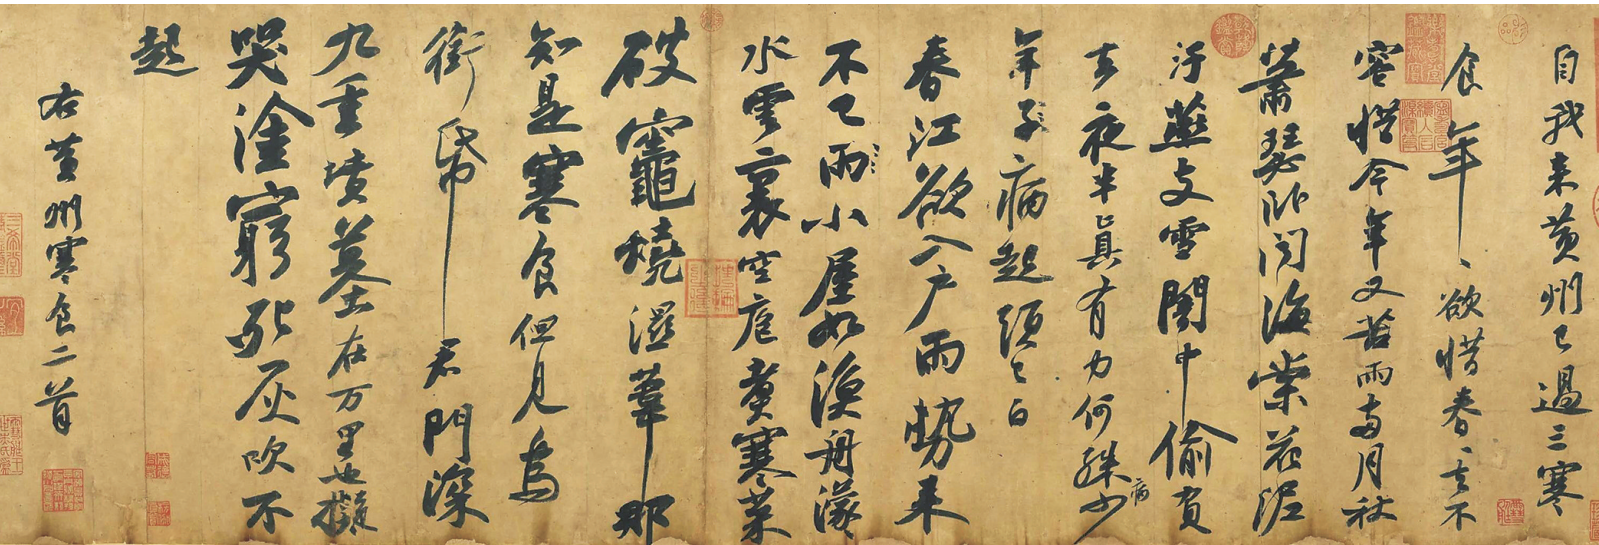 自我来黄州已過三寒
食年〻欲惜春〻去不
容惜今年又苦雨兩月秋
蕭瑟卧聞海棠花泥
汙燕支雪闇中偷負
去夜半真有力何殊病少
年子病起頭已白
春江欲入户雨勢来
不已雨小屋如漁舟濛
水雲裏空庖煮寒菜
破竈燒濕葦那
知是寒食但見烏
銜帋君門深
九重墳墓在万里也擬
哭塗窮死灰吹不
起
右黄州寒食二首